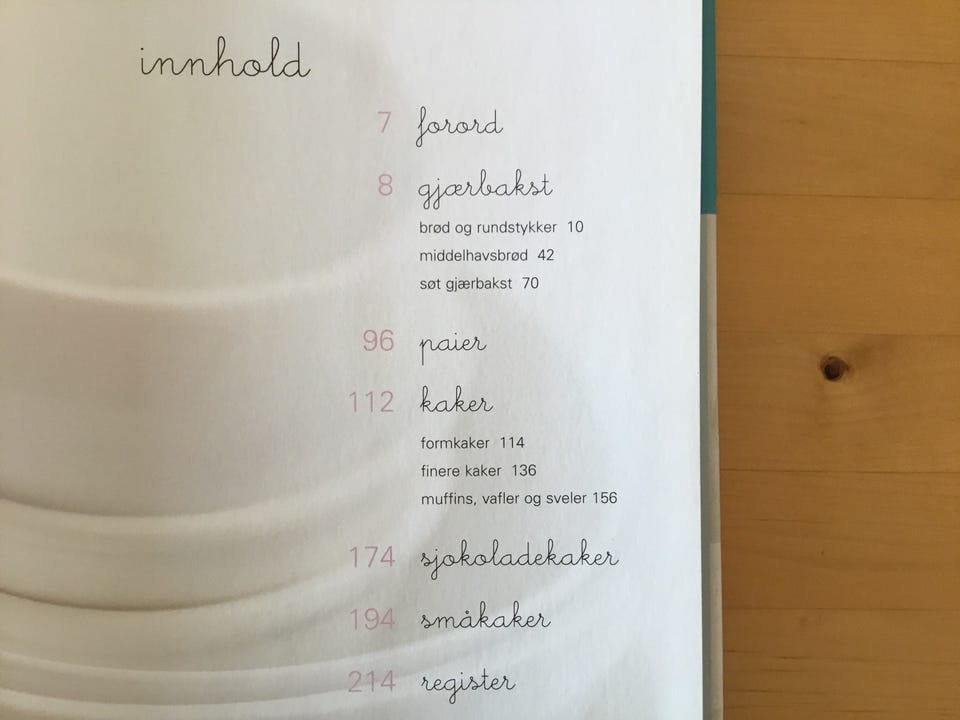 innhold
7 forord
8 gjærbakst
brød og rundstykker 10
middelhavsbrød 42
søt gjærbakst 70
96 paier
112 kaker
formkaker 114
finere kaker 136
muffins, vafler og sveler 156
174 sjokoladekaker
194 småkaker
214 register